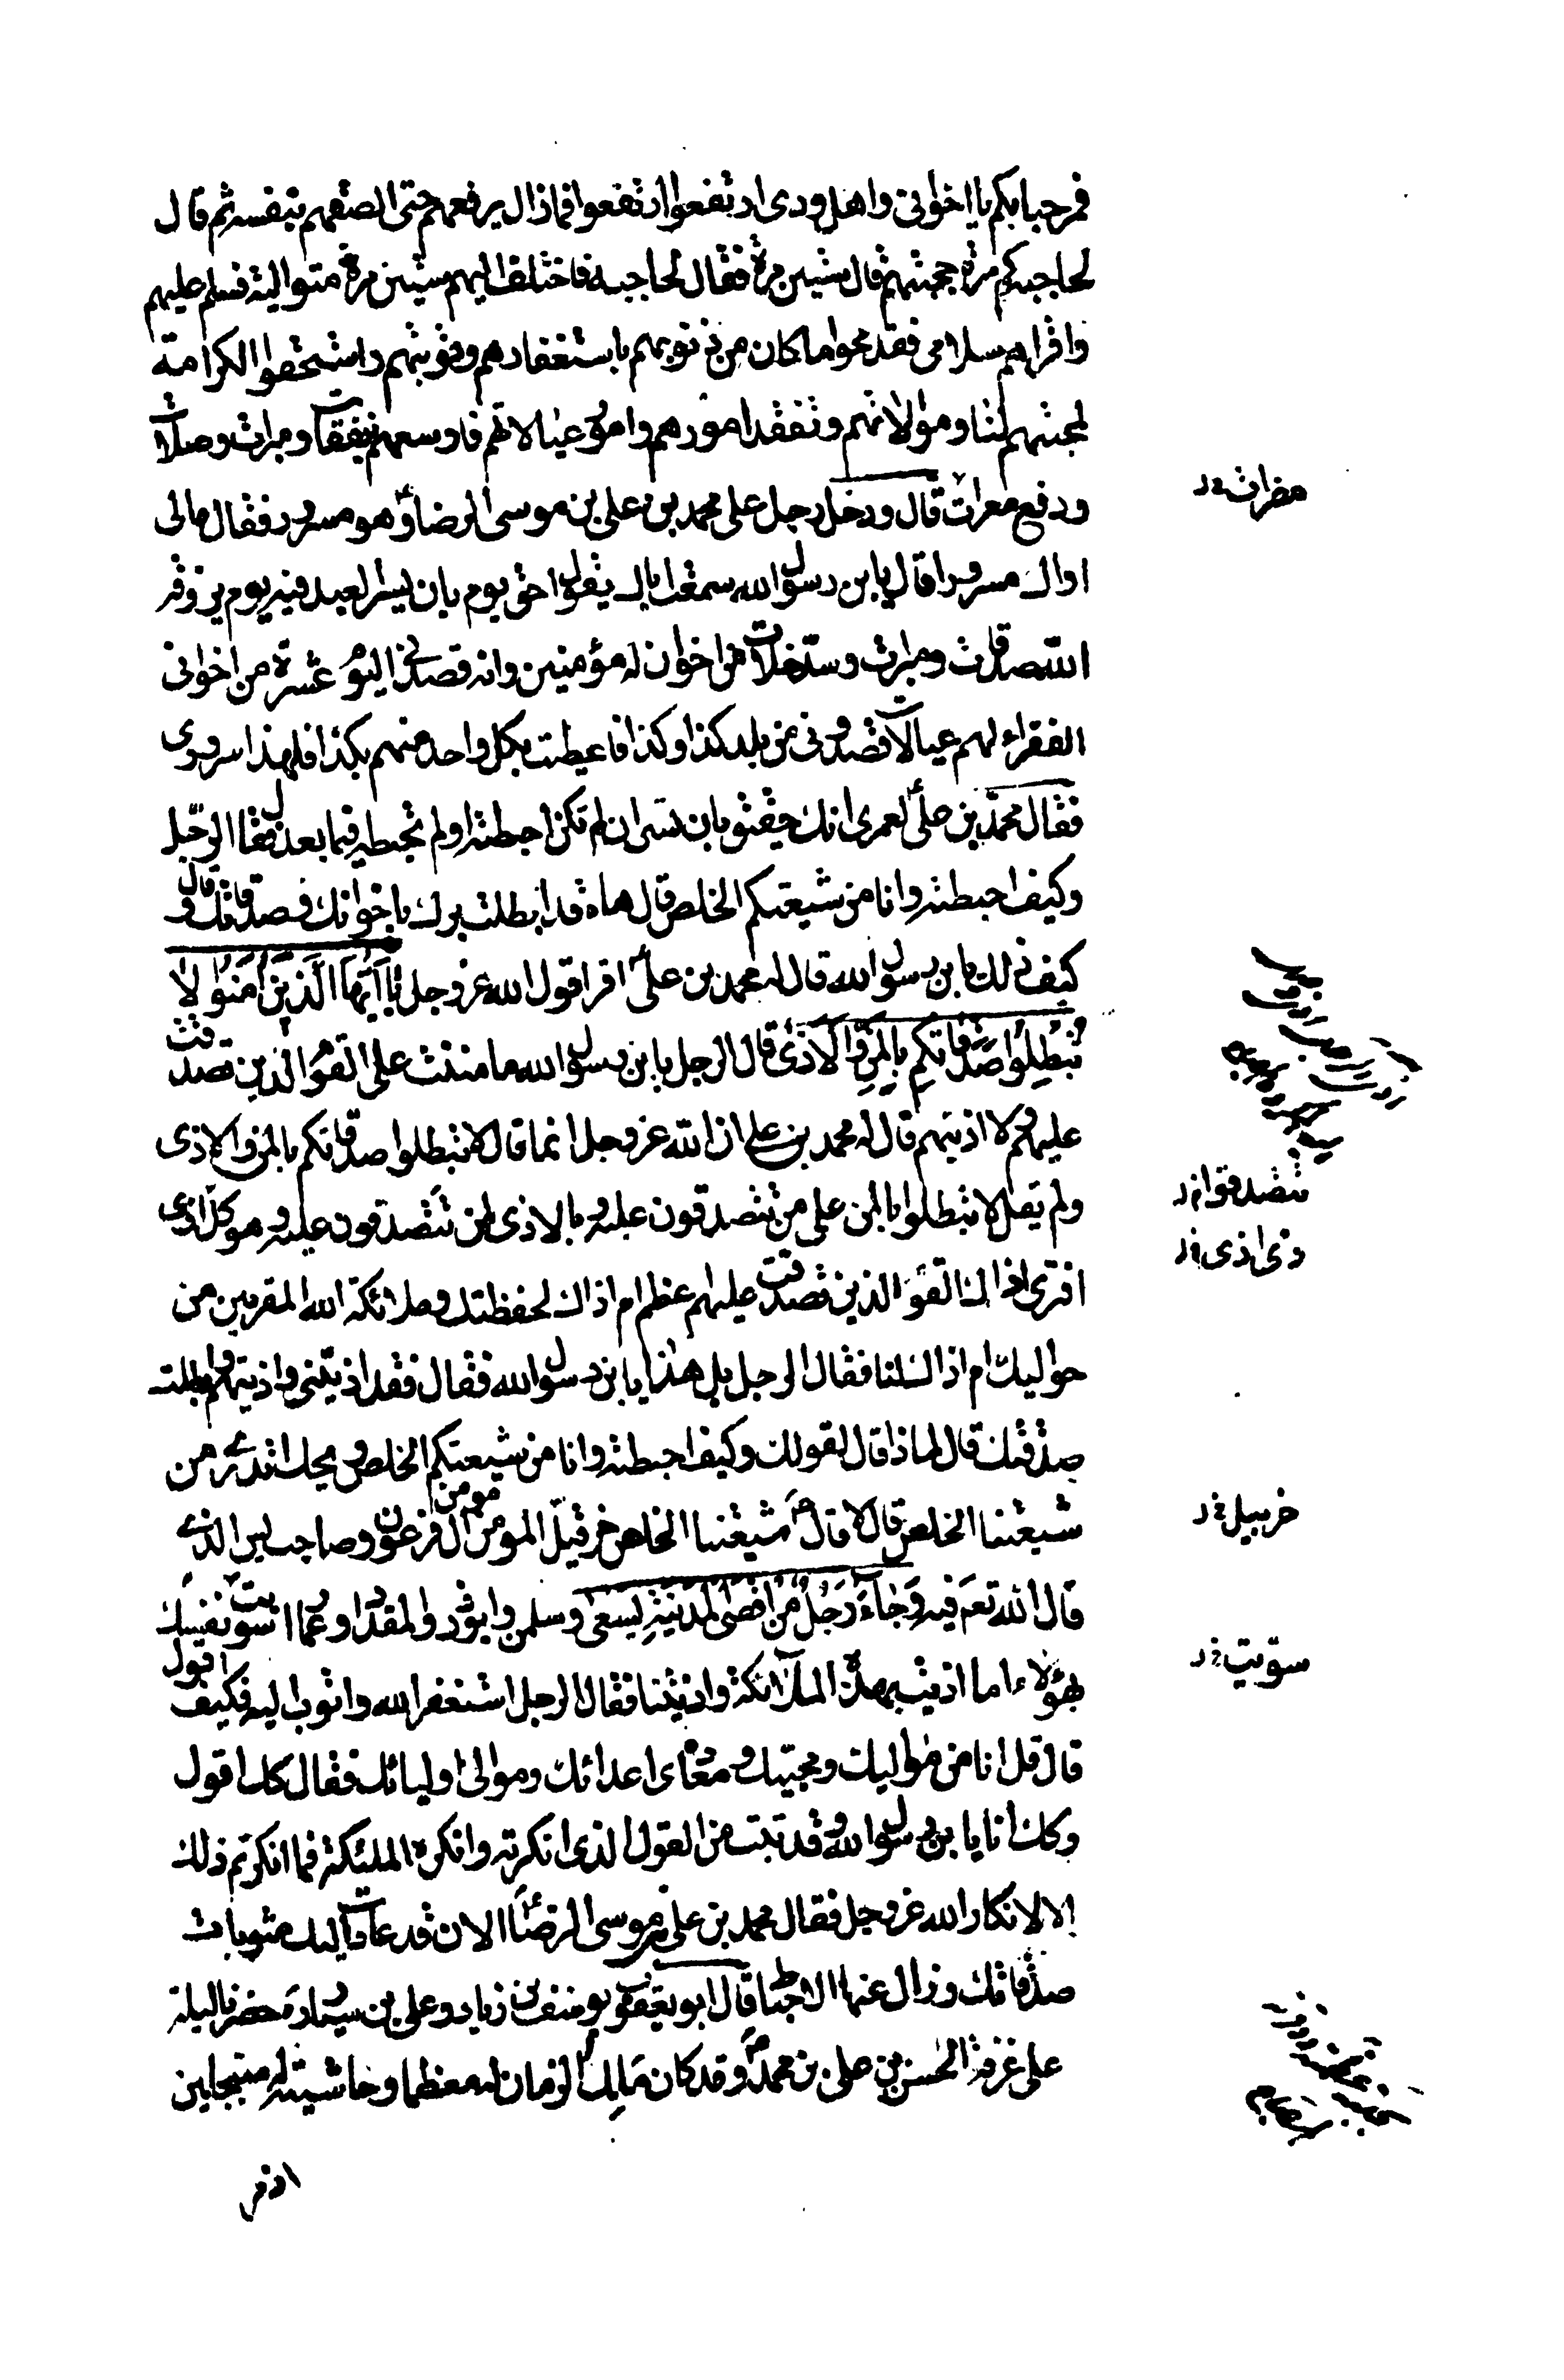 فمرحبا بكم يا اخوانى واهل ودى ارتفعوا ارتفعوا فما زال يرفعهم حتى الصقهم بنفسه ثم قال
لحاجبه كم مرة حجبتهم قال ستين مرة فقال لحاجبه فاختلف اليهم ستين مرة متوالية فسلم عليهم
واقراهم سلامى فقد محوا ما كان من ذنوبهم باستغفارهم وتوبتهم واستحقوا الكرامة
لمحبتهم لنا وموالاتهم وتفقد امورهم وامور عيالاتهم فاوسعهم بنفقات ومبرات وصلات
ودفع معرات قال ودخل رجل على محمد بن على بن موسى الرضا وهو مسرور فقال مالى
اراك مسرورا قال يا بن رسول الله سمعت اباك يقول احق يوم بان يسر العبد فيه يوم يرزقه
الله صدقات ومبرات وسد خلات من اخوان له مؤمنين وانه قصدنى اليوم عشرة من اخوانى
الفقراء لهم عيالات قصدونى من بلد كذا وكذا فاعطيت بكل واحد منهم بكذا فلهذا سرورى
فقال محمد بن على لعمرى انك حقيق بان تسر ان لم تكن احبطته اولم تحبطه فيما بعد فقال الرجل
وكيف احبطته وانا من شيعتكم الخلص قال هاه قد ابطلت برك باخوانك وصدقاتك قال و
كيف ذلك يا بن رسول الله قال له محمد بن على اقرا قول الله عز وجل يا ايها الذين امنوا لا
تبطلوا صدقاتكم بالمن والاذى قال الرجل يا بن رسول الله ما مننت على القوم الذين تصدقت
عليهم ولا اذيتهم قال له محمد بن على ان الله عز وجل انما قال لا تبطلوا صدقاتكم بالمن والاذى
ولم يقل لا تبطلوا بالمن على من تتصدقون عليه وبالاذى لمن تتصدقون عليه وهو كل اذى
افترى اذاك القوم الذين تصدقت عليهم عظم ام اذاك لحفظتك وملائكة الله المقربين من
حواليك ام اذاك لنا فقال الرجل بل هذا يا بن رسول الله فقال فقد اذيتنى واذيتهم وابطلت
صدقتك قال لماذا قال لقولك وكيف احبطته وانا من شيعتكم الخلص ويحك اتدرى من
شيعتنا الخلص قال لا قال شيعتنا الخلص خرقيل المومن مومن ال فرعون وصاحب يس الذى
قال الله تعم فيه وجاء رجل من اقصى المدينة يسعى وسلمن وابوذر والمقداد وعمار اسويت نفسك
بهؤلاء اما اذيت بهذه الملائكة واذيتنا فقال الرجل استغفر الله واتوب اليه فكيف اقول
قال قل انا من مواليك ومحبيك ومعادى اعدائك وموالى اوليائك فقال كك اقول
وكك انا يا بن رسول الله وقد تبت من القول الذى انكرته وانكرته الملئكة فما انكرتم ذلك
الا لانكار الله عز وجل فقال محمد بن على بن موسى الرضا الان قد عادت اليك مثوبات
صدقاتك وزال عنها الاحباط قال ابو يعقوب يوسف بن زياد وعلى بن سيار حضرنا ليلة
على غرفة الحسن بن على بن محمد وقد كان مالك الزمان له معظما وحاشيته له متبجلين
مضرات خ د
تتصدقوا خ د
ذى اذى خ د
خربيل خ د
سويت خ د